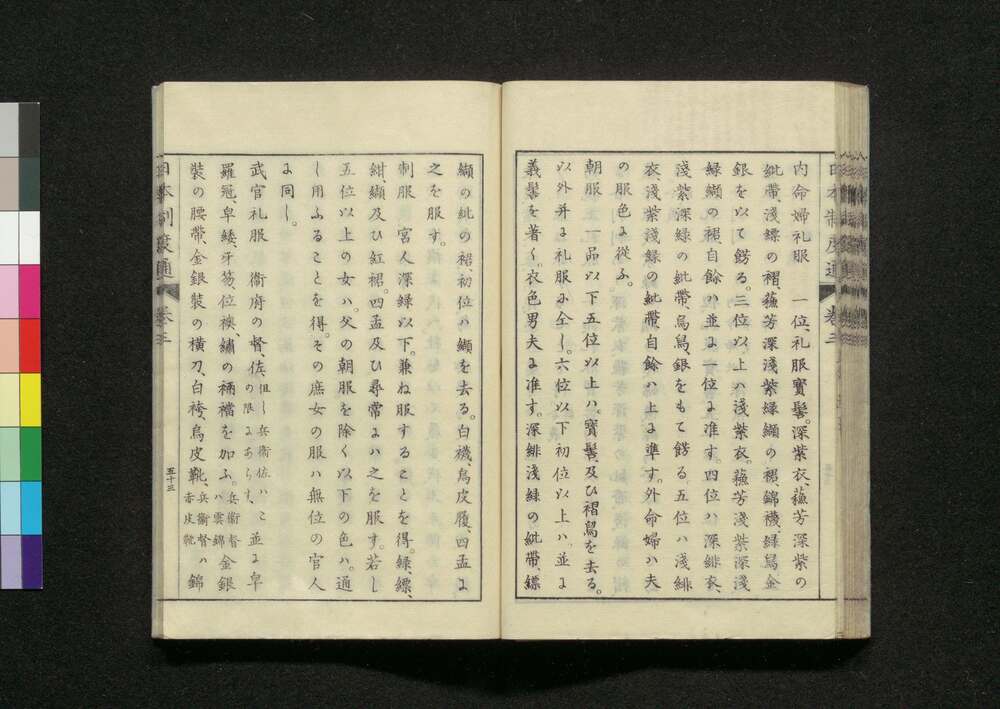 日本制度通
卷三
内命婦礼服　一位、礼服寶髻。深紫衣、蘓芳深紫の
紕帶、淺縹の褶、蘓芳深淺紫緑纈の裙、錦襪、緑舄金
銀を以て餝る。三位以上ハ淺紫衣。蘓芳淺紫深淺
緑纈の裙、自餘ハ並よ一位よ准す。四位ハ深緋衣、
淺紫深緑の紕帶、烏舄、銀をもて餝る。五位ハ淺緋
衣、淺紫淺緑の紕帶、自餘ハ上よ準す。外命婦ハ夫
の服色よ從ふ。
朝服　一品以下五位以上ハ。寶髻、及ひ褶舄を去る。
以外并よ礼服に仝し。六位以下初位以上ハ、並よ
義髻を著く。衣色男夫よ准す。深緋淺緑の紕帶、縹
纈の紕の裙、初位ハ纈を去る。白襪、烏皮履、四孟よ
之を服す。
制服　宮人深緑以下。兼ね服することを得。緑、縹、
紺、纈及ひ紅裙。四孟及ひ尋常よハ之を服す。若し
五位以上の女ハ。父の朝服を除く以下の色ハ。通
し用ふることを得。その庶女の服ハ無位の宮人
よ同し。
武官礼服　衞府の督、佐、但し兵衞佐ハこの限よあらす、並よ皁
羅冠、皁緌、牙笏、位襖、繡の裲襠を加ふ。兵衞督ハ雲錦金銀
裝の腰帶、金銀裝の橫刀、白袴、烏皮靴、兵衞督ハ赤皮靴錦
日本制度通
卷三
五十三